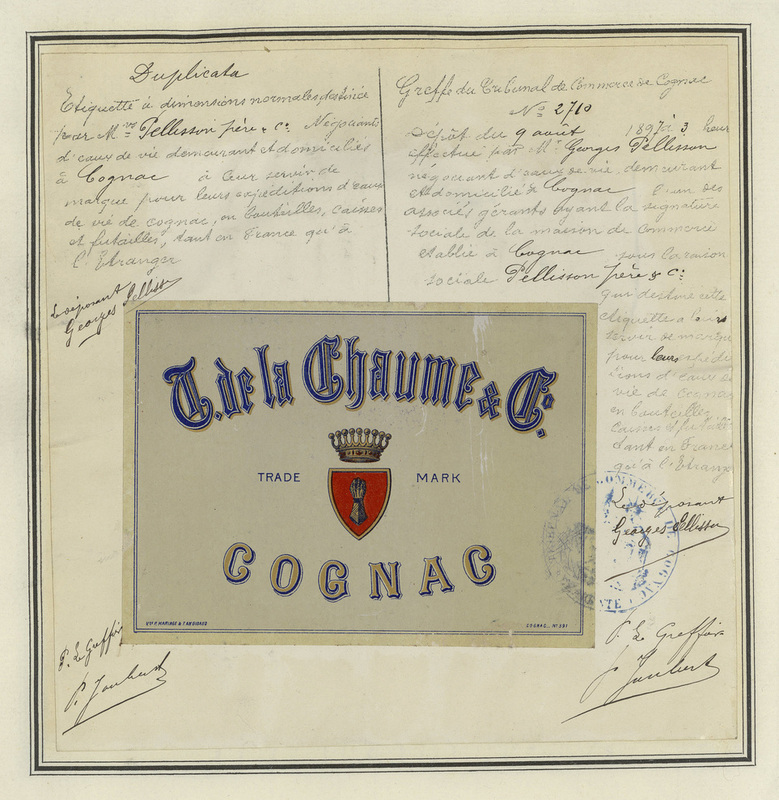 Duplicata
Etiquette à dimensions normales, destinée
par Mrs Pellisson père & Cie Négociants
d'eaux de vie demeurant et domiciliés
à Cognac à leur servir de
marque pour leurs expéditions d'eaux
de vie de cognac, en bouteilles, caisses
et futailles, tant en France qu'à
l'Etranger
Le déposant
Georges Pellisson
Greffe du Tribunal de Commerce de Cognac
No 2710
Dépôt du 9 août 1897 à 3 heur
effectué par Mr Georges Pellisson
négociant d'eaux de vie, demeurant
et domicilié à Cognac l'un des
associés gérants ayant la signature
sociale de la maison de commerce
établie à Cognac sous la raison
sociale Pellisson père & Cie
qui destine cette
étiquette à leur
servir de marque
pour leurs expédi
tions d'eaux de
vie de cognac
en bouteilles
caisses & futailles
tant en France
qu'à l'Etranger
Le déposant
Georges Pellisson
T. de la Chaume & Co.
TRADE MARK
COGNAC
COGNAC_ No 391
TRIBUNAL DE COMMERCE DE COGNAC
P. Le Greffier
P. Joubert
P. Le Greffier
P. Joubert